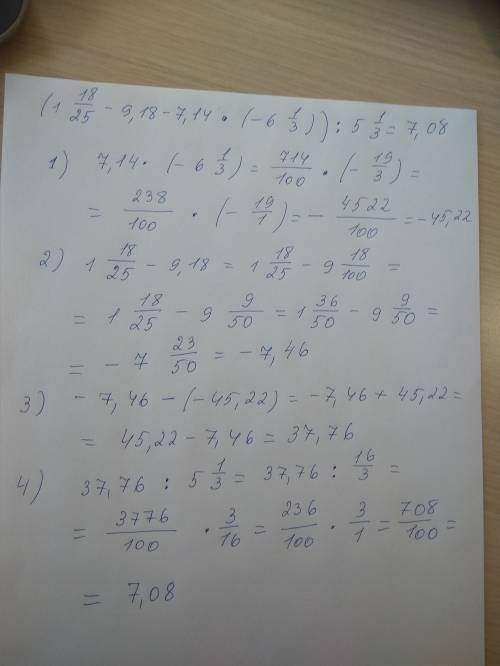 (1 18/25 - 9,18 - 7,14 · (-6 1/3)) : 5 1/3 = 7,08
1) 7,14 · (-6 1/3) = 714/100 · (- 19/3) =
= 238/100 · (- 19/1) = - 4522/100 = -45,22
2) 1 18/25 - 9,18 = 1 18/25 - 9 18/100 =
= 1 18/25 - 9 9/50 = 1 36/50 - 9 9/50 =
= - 7 23/50 = -7,46
3) -7,46 - (-45,22) = -7,46 + 45,22 =
= 45,22 - 7,46 = 37,76
4) 37,76 : 5 1/3 = 37,76 : 16/3 =
= 3776/100 · 3/16 = 236/100 · 3/1 = 708/100 =
= 7,08